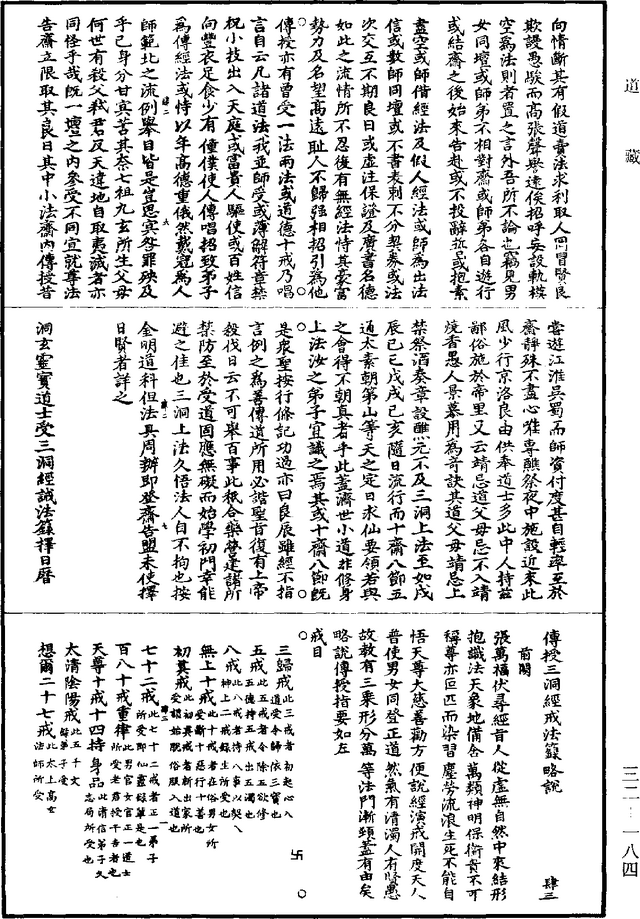 道藏
向情斷其有假道賣法求利取人罔冒賢良
欺謾愚騃而高張聲譽遠俟招呼妄設軌模
空為法則者置之言外吾所不論也竊見男
女同壇或師弟不相對齋或師弟各自遊行
或結齋之後始來告赴或不投辭旨或抱素
盡空或師借經法及假人經法或師為出法
信或數師同壇或不書表刺不分契券或法
次交互不期良日或虛注保證及廣書名德
如此之流情所不忍復有無經法恃其豪富
勢力及名望高遠耻人不歸強相招引為他
傳授亦有曾受一法兩法或道德十戒乃唱
言自云凡諸道法戒並師受或薄解符章禁
祝小技出入天庭或富貴人驅使或百姓信
向豐衣足食少有僮僕使人傳唱招致弟子
為傳經法或恃以年高德重俄然戴冠為人
師範北之流例舉目皆是豈思冥咎罪殃及
乎己身分甘真苦其奈七祖九玄所生父母
何世有殺父弒君及天違地自取夷誡者亦
同怪乎哉既一壇之內參受不同宜就尊法
告齋立限取其良日其中小法齋內傳授昔
嘗遊江淮吳蜀而師資付度甚自輕率至於
齋靜殊不盡心唯專醮祭夜中施設近來此
風少行京洛良由供奉道士多此中人持茲
鄙俗施於帝里又云靖忌道父母忌不入靖
燒香愚人景慕用為奇訣其道父母靖忌上
禁祭酒奏章設醮元不及三洞上法至如戌
辰巳巳戌戌己亥隨日流行而十齋八節五
通太素朝第山等天之定日求仙要領若與
之會得不朝真者乎此蓋濟世小道非修身
上法汝之弟子宜識之焉其或十齋八節既
是眾聖按行條記功過亦曰良辰雖經不指
言例之為善傳道所用必諧聖旨復有上帝
殺伐日云不可舉百事此秖合藥營建諸所
禁防至於受道固應無礙而始學初門幸能
避之佳也三洞上法久悟法人自不拘也按
金明道科但法具周辦即登齋告盟未使擇
日賢者詳之
洞玄靈寶道士受三洞經誡法籙擇日曆
傳授三洞經戒法籙略說 肆三
前闕
張萬福伏尋經旨人從虛無自然中來結形
抱識法天象地備含萬類神明保衛貴不可
稱尊亦叵匹而染習塵勞流浪生死不能自
悟天尊大慈善勸方便說經演戒開度天人
普使男女同登正道然氣有清濁人有賢愚
故教有三乘形分萬等法門漸頭蓋有由矣
略說傳授指要如左
戒目
三歸戒此三戒者初起心入道受令歸依三寶也
五戒此五戒者令除五欲修五德持五戒出五濁也
八戒此八戒者持八事以契八神上二戒錄生所受也
無上十戒此十戒者在俗男女所受斷十惡行十善也
初真戒此初真戒者新出家所受謂始脫俗服入道也
七十二戒此七十二戒者正一弟子所受即仙靈籙輩是也
百八十戒重律此男官正一道士所受老君授干吉者也
天尊十戒十四持身品此清信弟子久志局所受也
太清陰陽戒此五千文籙弟子受
想爾二十七戒此太上高玄法師所受
三二一一八四